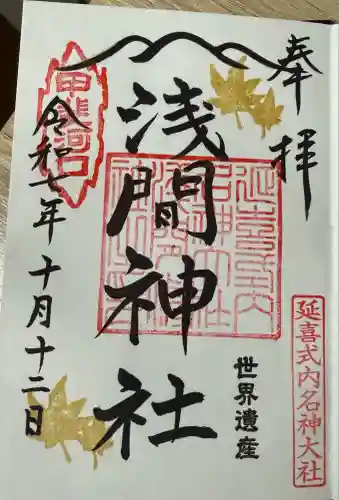 奉拝
延喜式内名神大社
世界遺産
浅間神社
甲斐河口
令和七年十月十二日